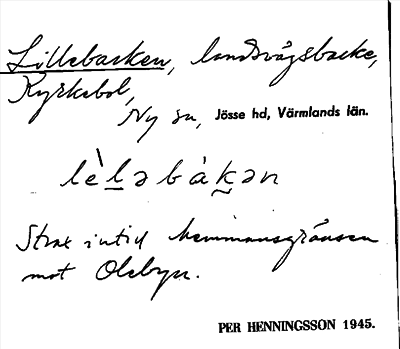 Lillebacken, landsvägsbacke,
Kyrkebol,
Ny sn, Jösse hd, Värmlands län.
lèləbàkən
Strax intill hemmansgränsen
mot Olebyn.
PER HENNINGSSON 1945.